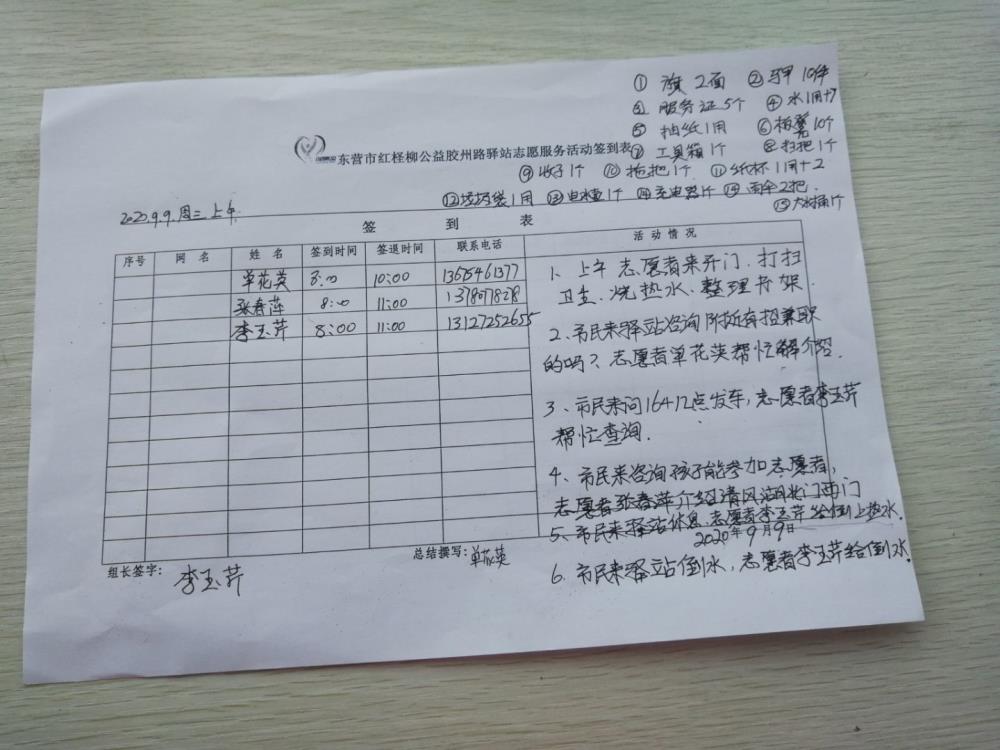 ① 旗 2面 ② 马甲 10件
③ 服务证 5个 ④ 水 1用+7
⑤ 抽纸 1用 ⑥ 板凳 10个
东营市红柽柳公益胶州路驿站志愿服务活动签到表 ⑦ 工具箱 1个 ⑧ 扫把 1个
⑨ 1个 ⑩ 拖把 1个 ⑪ 纸杯 1用+2
⑫ 垃圾袋 1用 ⑬ 1个 ⑭ 充电器 1个 ⑮ 雨伞 2把
⑮ 1个
2020.9.9.周三上午
签 到 表
序号 网 名 姓 名 签到时间 签退时间 联系电话 活动情况
单花英 8:00 10:00 13675461377
张春萍 8:00 11:00
李玉芹 8:00 11:00 13127252655
1、上午志愿者来开门、打扫
卫生、烧热水、整理书架.
2、市民来驿站咨询附近有招兼职
的吗?志愿者单花英帮忙解介绍.
3、市民来问164 12点发车,志愿者李玉芹
帮忙查询.
4、市民来咨询孩子能参加志愿者,
志愿者张春萍介绍清风湖北门西门
5、市民来驿站休息,志愿者李玉芹给倒上热水.
2020年9月9日
6、市民来驿站倒水,志愿者李玉芹给倒水.
组长签字: 李玉芹
总结撰写: 单花英